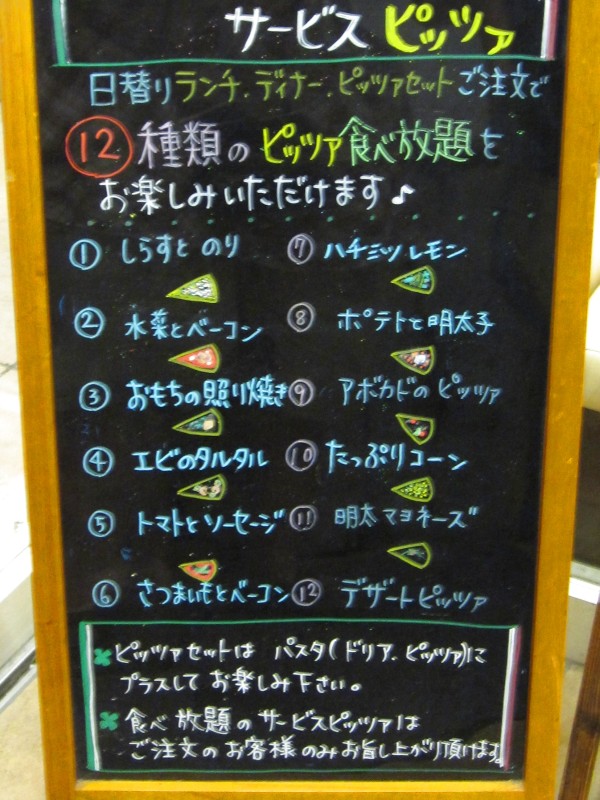 サービス ピッツァ
日替りランチ.ディナー.ピッツァセットご注文で
⑫種類のピッツァ食べ放題を
お楽しみいただけます♪
① しらすと のり
② 水菜とベーコン
③ おもちの照り焼き
④ エビのタルタル
⑤ トマトとソーセージ
⑥ さつまいもとベーコン
⑦ ハチミツレモン
⑧ ポテトと明太子
⑨ アボカドの ピッツァ
⑩ たっぷりコーン
⑪ 明太マヨネーズ
⑫ デザートピッツァ
ピッツァセットは パスタ(ドリア.ピッツァ)に
プラスして お楽しみ下さい。
食べ放題のサービスピッツァは
ご注文のお客様のみお召し上がり頂けます。